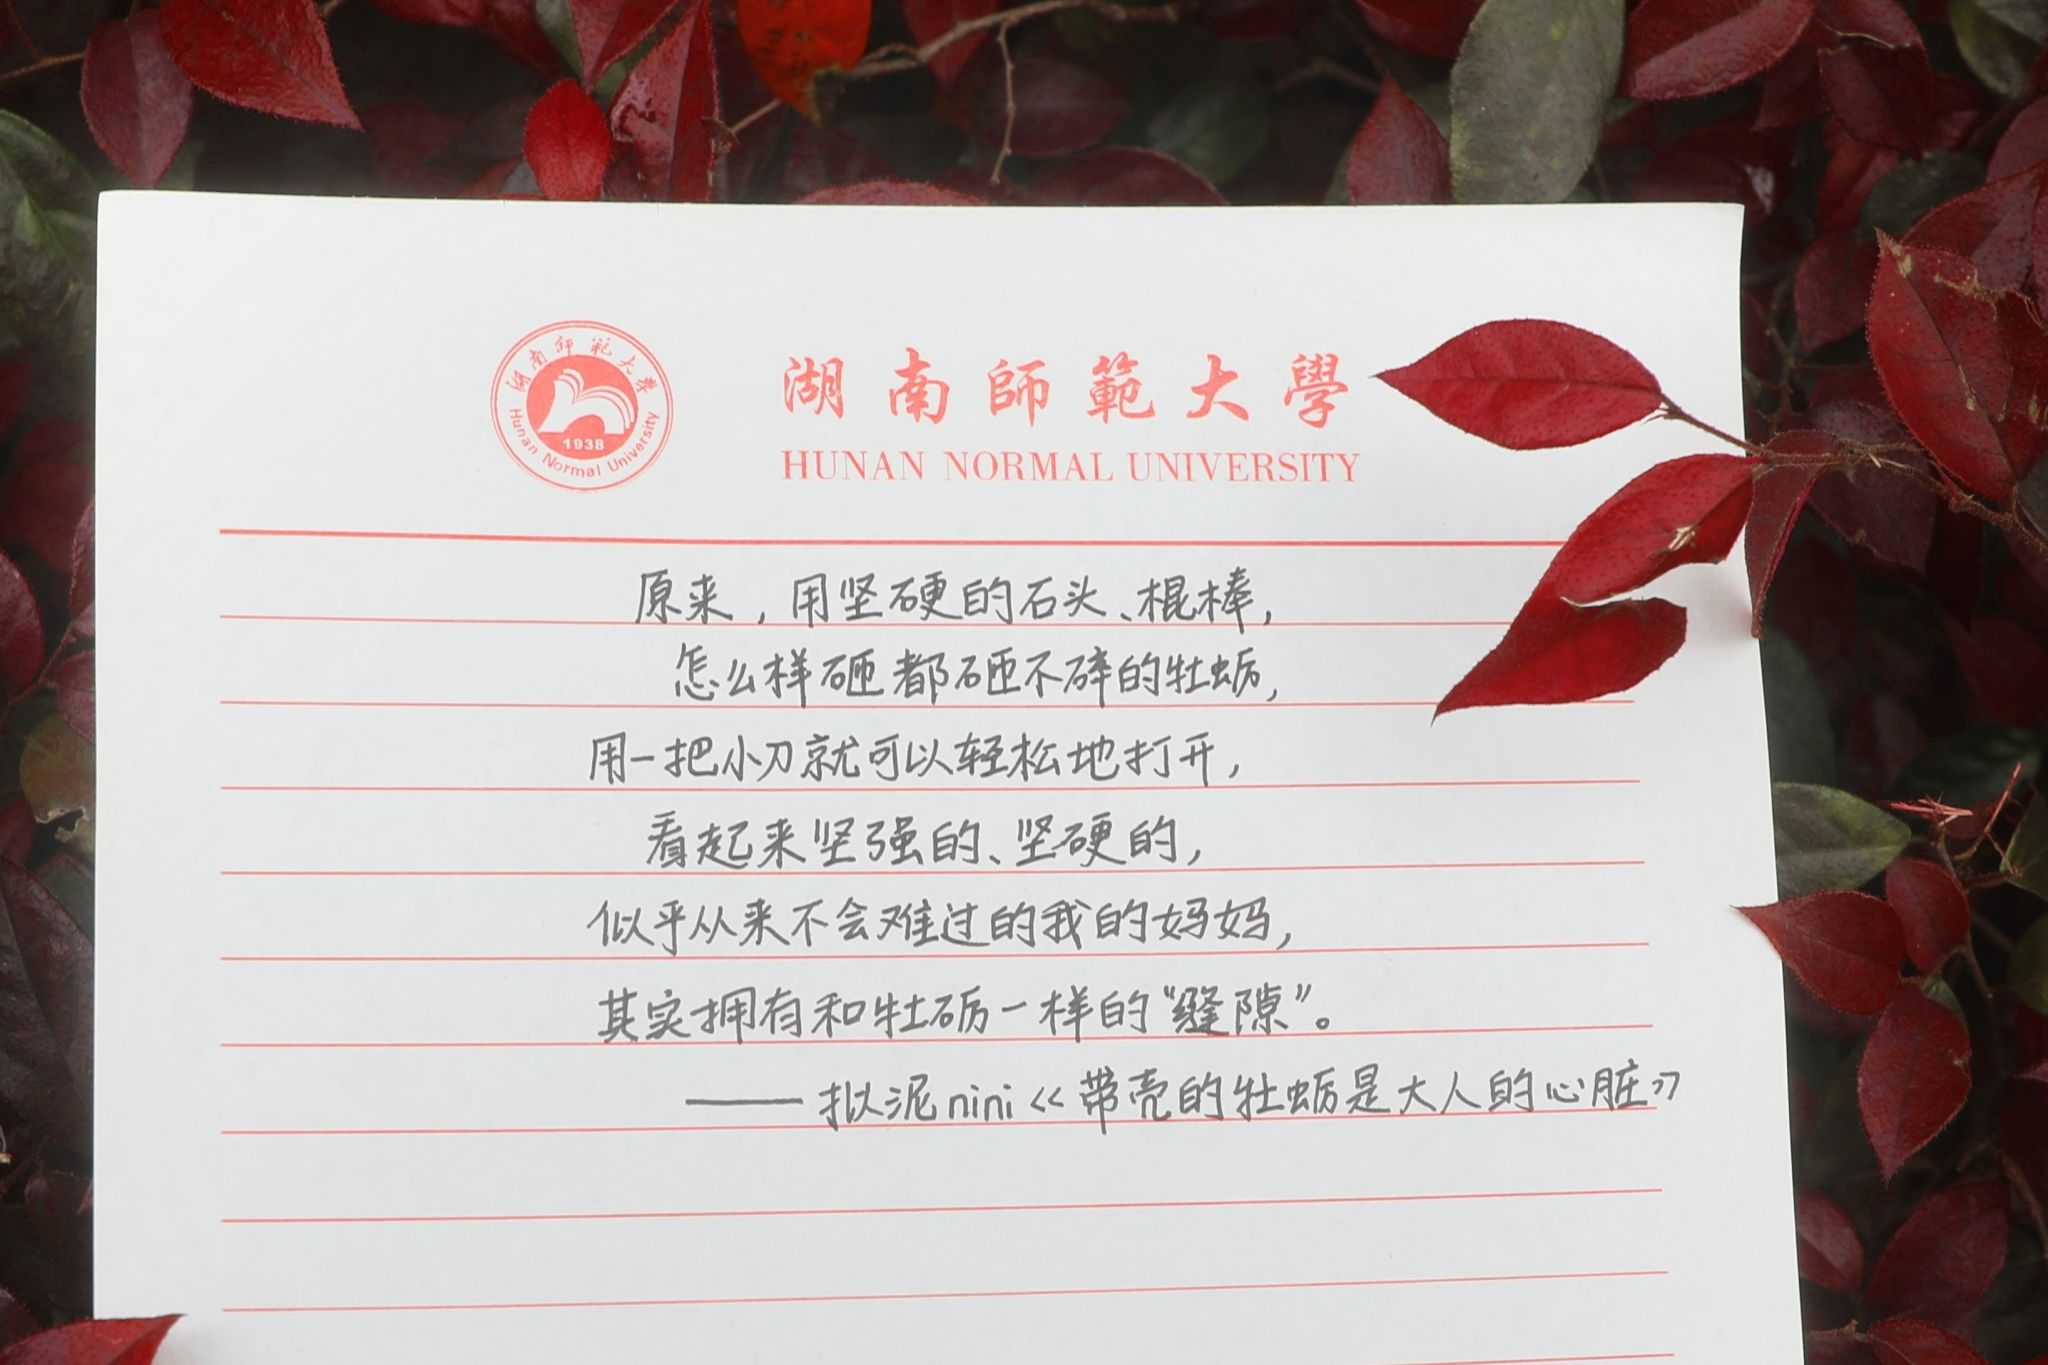 湖南师范大学
1938
Hunan Normal University
湖南師範大學
HUNAN NORMAL UNIVERSITY
原来，用坚硬的石头、棍棒，
怎么样砸都砸不碎的牡蛎，
用一把小刀就可以轻松地打开，
看起来坚强的、坚硬的，
似乎从来不会难过的我的妈妈，
其实拥有和牡砺一样的“缝隙”。
——拟泥nini《带壳的牡蛎是大人的心脏》